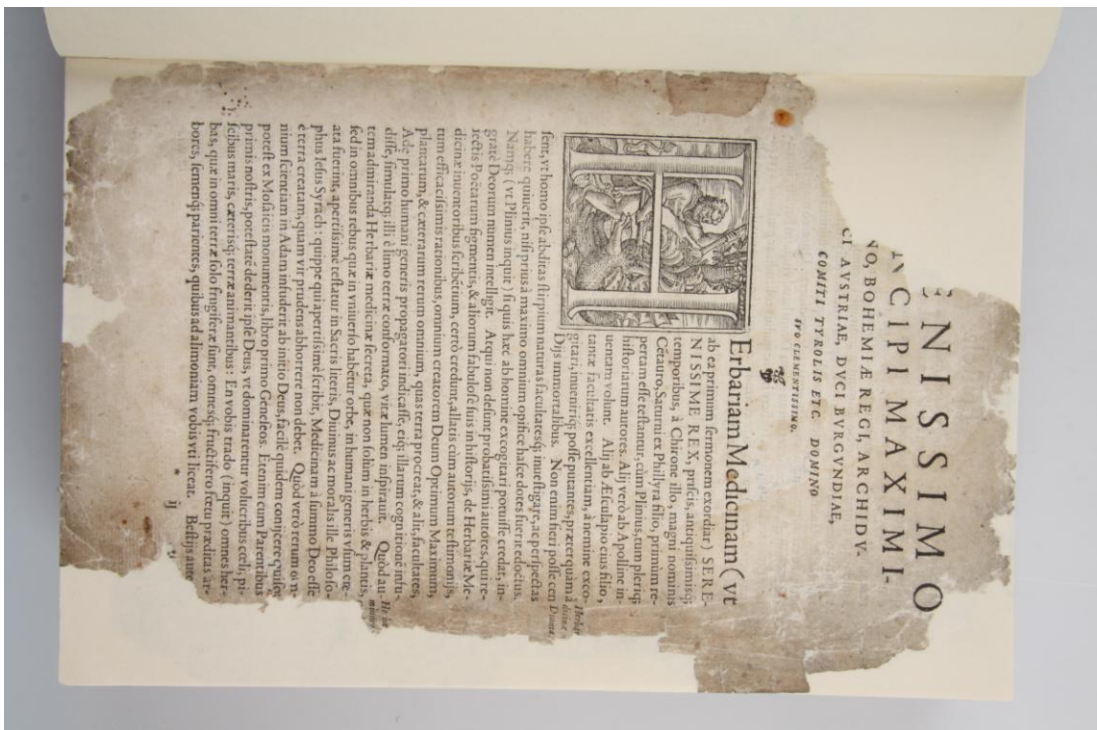 ENISSIMO
NCIPI MAXIMI-
NO, BOHEMIÆ REGI, ARCHIDV-
CI AVSTRIAE, DVCI BVRGVNDIAE,
COMITI TYROLIS ETC. DOMINO
SVO CLEMENTISSIMO.
HErbariam Medicinam (vt
ab ea primum sermonem exordiar) SERE-
NISSIME REX, priscis, antiquissimisq;
temporibus, à Chirone illo, magni nominis
Cētauro, Saturni ex Phillyra filio, primùm re-
pertam esse testantur, cùm Plinius, tum pleriq;
historiarum autores. Alij verò ab Apolline in-
uentam volunt. Alij ab Æsculapio eius filio,
tantæ facultatis excellentiam, à nemine exco-
gitari, inueniriq; posse putantes, præterquàm à
Dijs immortalibus. Non enim fieri posse cen
sent, vt homo ipse abditas stirpium naturas facultatesq; inuestigare, ac perspectas
habere quiuerit, nisi prius à maximo omnium opifice hasce dotes fuerit edoctus.
Namq; (vt Plinius inquit) si quis hæc ab homine excogitari potuisse credat, in-
gratè Deorum numen intelligit. Atqui non desunt probatissimi autores, qui re-
iectis Poëtarum figmentis, & aliorum fabulosè suis in historijs, de Herbariæ Me-
dicinæ inuentoribus scribētium, certò credunt, allatis cùm autorum testimonijs,
tum efficacissimis rationibus, omnium creatorem Deum Optimum Maximum,
plantarum, & cæterarum rerum omnium, quas terra procreat, & alit, facultates,
Adę primo humani generis propagatori indicasse, eiq; illarum cognitionē infu-
disse, simulatq; illi è limo terræ conformato, vitæ lumen inspirauit. Quòd au-
tem admiranda Herbariæ medicinæ secreta, quæ non solùm in herbis & plantis,
sed in omnibus rebus quæ in vniuerso habētur orbe, in humani generis vsum cre-
ata fuerint, apertissimè testatur in Sacris literis, Diuinus ac moralis ille Philoso-
phus Iesus Syrach: quippe qui apertissimè scribit, Medicinam à summo Deo esse
è terra creatam, quam vir prudens abhorrere non debet. Quòd verò rerum om
nium scientiam in Adam infuderit ab initio Deus, facilè quidem conijcere quisq;
potest ex Mosaicis monumentis, libro primo Geneseos. Etenim cum Parentibus
primis nostris, potestatē dederit ipse Deus, vt dominarentur volucribus cœli, pi-
scibus maris, cæterisq; terræ animantibus: En vobis trado (inquit) omnes her-
bas, quæ in omni terræ solo frugiferæ sunt, omnesq; fructifero fœtu præditas ar-
bores, semenq; parientes, quibus ad alimoniam vobis vti liceat. Bestijs aute
* ij
Herbar
dicinæ